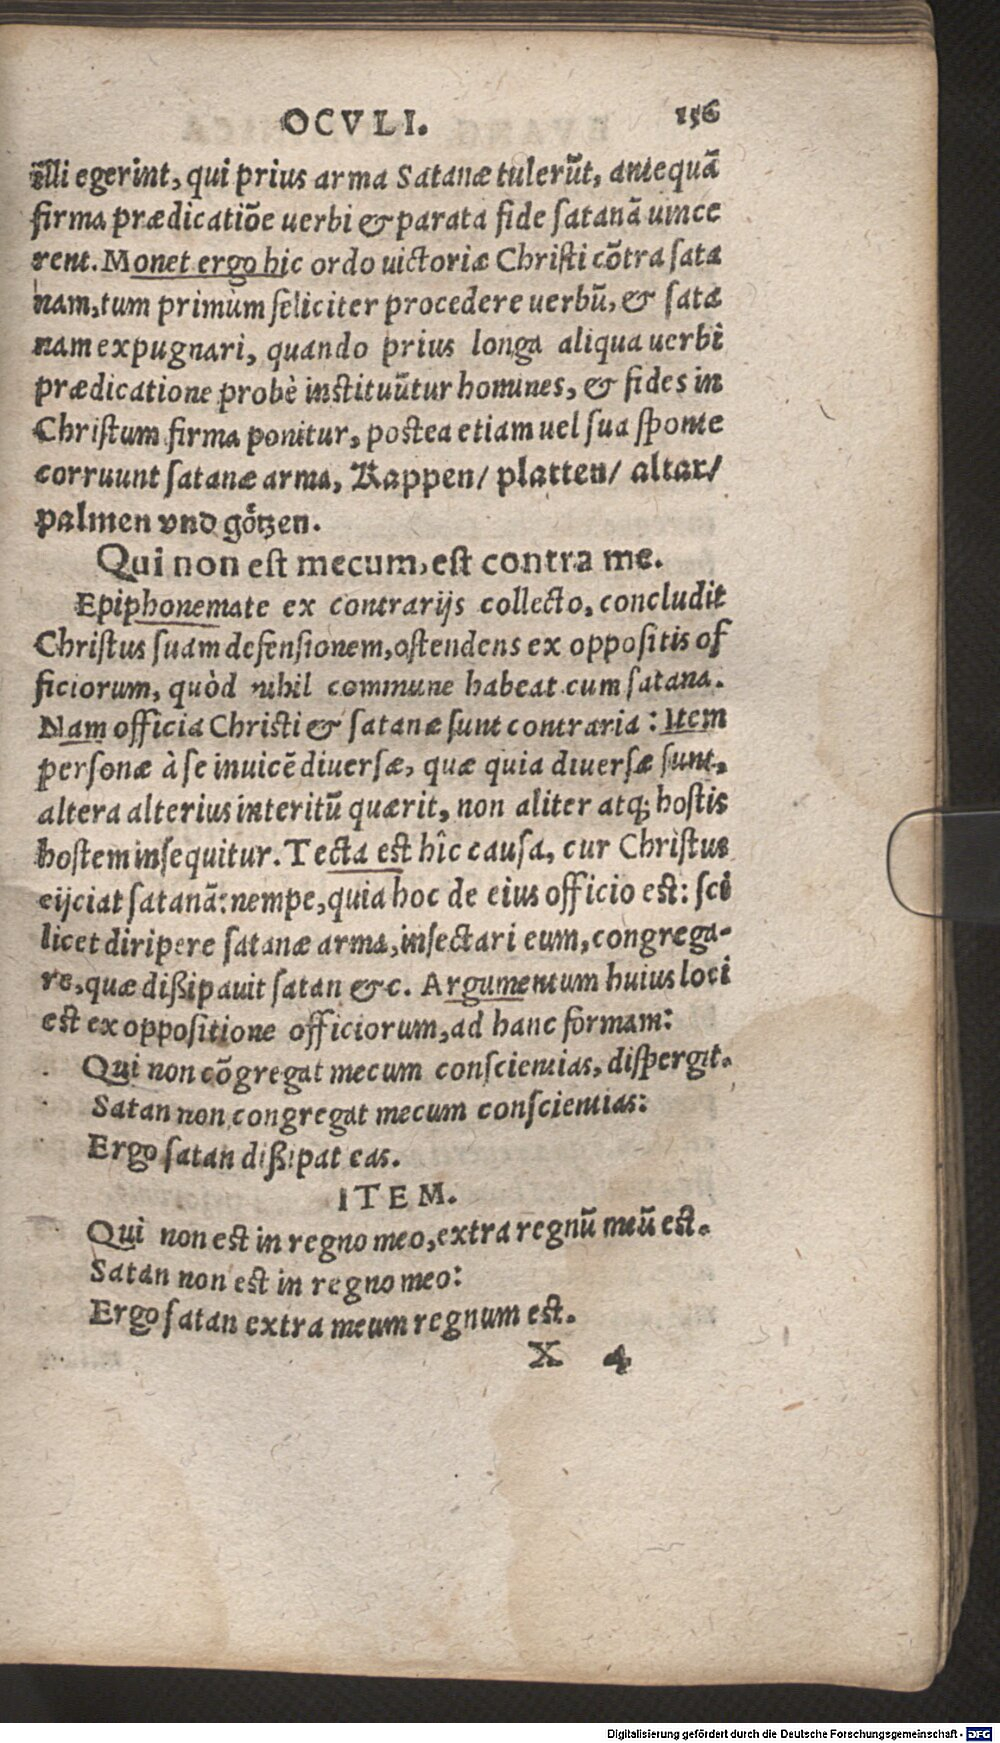 OCVLI. 156
illi egerint, qui prius arma Satanæ tulerūt, antequā
firma prædicatiōe uerbi & parata fide satanā uince
rent. Monet ergo hic ordo uictoriæ Christi cōtra sata
nam, tum primùm feliciter procedere uerbū, & sata
nam expugnari, quando prius longa aliqua uerbi
prædicatione probè instituūtur homines, & fides in
Christum firma ponitur, postea etiam uel sua sponte
corruunt satanæ arma, Kappen/ platten/ altar/
palmen vnd götzen.
Qui non est mecum, est contra me.
Epiphonemate ex contrarijs collecto, concludit
Christus suam defensionem, ostendens ex oppositis of
ficiorum, quòd nihil commune habeat cum satana.
Nam officia Christi & satanæ sunt contraria: Item
personæ à se inuicē diuersæ, quæ quia diuersæ sunt,
altera alterius interitū quærit, non aliter atq; hostis
hostem insequitur. Tecta est hîc causa, cur Christus
eijciat satanā: nempe, quia hoc de eius officio est: sci
licet diripere satanæ arma, insectari eum, congrega-
re, quæ dißipauit satan &c. Argumentum huius loci
est ex oppositione officiorum, ad hanc formam:
Qui non cōgregat mecum conscientias, dispergit.
Satan non congregat mecum conscientias:
Ergo satan dißipat eas.
ITEM.
Qui non est in regno meo, extra regnū meū est.
Satan non est in regno meo:
Ergo satan extra meum regnum est.
X 4
Digitalisierung gefördert durch die Deutsche Forschungsgemeinschaft - DFG